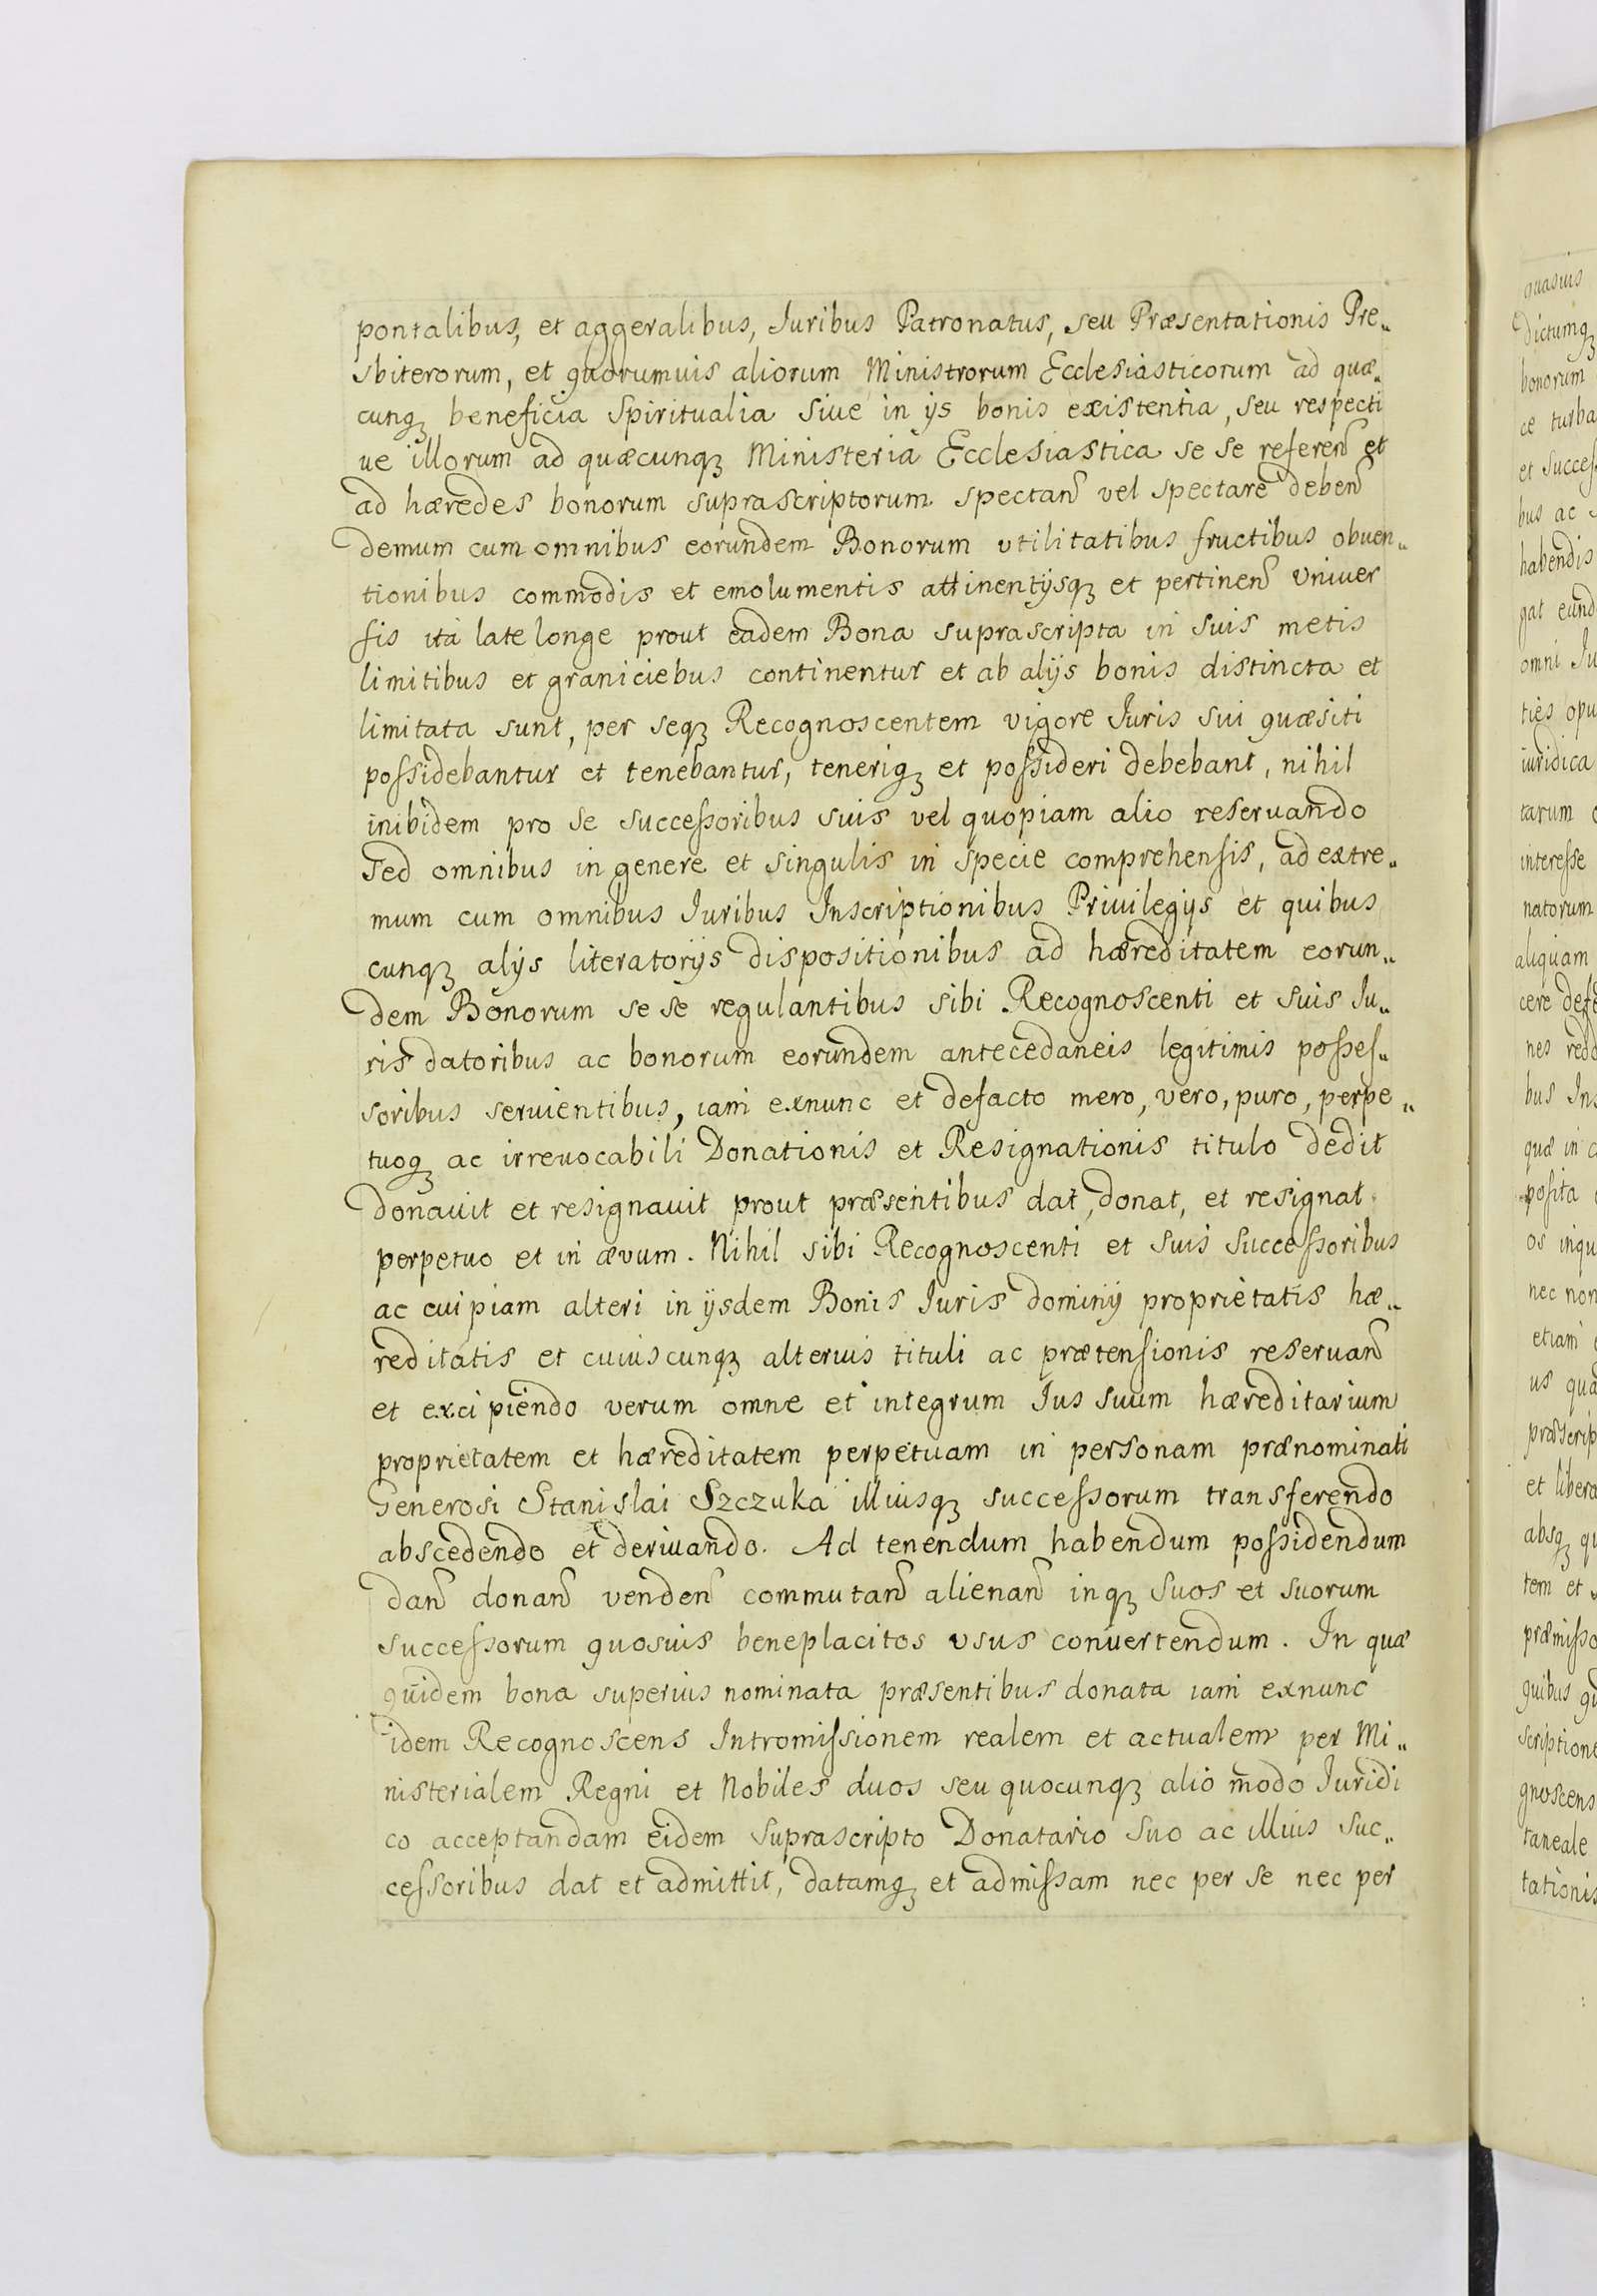 pontalibus, et aggeralibus, Iuribus Patronatus, seu Præsentationis Pre„
sbiterorum, et quorumuis aliorum Ministrorum Ecclesiasticorum ad quæ„
cunqꝫ beneficia Spiritualia siue in ijs bonis existentia, seu respecti
ue illorum ad quæcunqꝫ Ministeria Ecclesiastica se se referen̄ et
ad hæredes bonorum suprascriptorum spectan̄ vel spectare deben̄
demum cum omnibus eorundem Bonorum vtilitatibus fructibus obuen„
tionibus commodis et emolumentis attinentijsqꝫ et pertinen̄ vniuer
sis ità late longe prout eadem Bona suprascripta in suis metis
limitibus et graniciebus continentur et ab alijs bonis distincta et
limitata sunt, per seqꝫ Recognoscentem vigore Iuris sui quæsiti
possidebantur et tenebantur, teneriqꝫ et possideri debebant, nihil
inibidem pro se successoribus suis vel quopiam alio reseruando
sed omnibus in genere et singulis in specie comprehensis, ad extre„
mum cum omnibus Iuribus Inscriptionibus Priuilegijs et quibus
cunqꝫ alijs literatorijs dispositionibus ad hæreditatem eorun„
dem Bonorum se se regulantibus sibi Recognoscenti et suis Iu„
ris datoribus ac bonorum eorundem antecedaneis legitimis posses„
soribus seruientibus, iam exnunc et defacto mero, vero, puro, perpe„
tuoqꝫ ac irreuocabili Donationis et Resignationis titulo dedit
donauit et resignauit prout præsentibus dat, donat, et resignat
perpetuo et in ævum. Nihil sibi Recognoscenti et suis successoribus
ac cuipiam alteri in ijsdem Bonis Iuris dominij proprietatis hæ„
reditatis et cuiuscunqꝫ alterius tituli ac prætensionis reseruan̄
et excipiendo verum omne et integrum Ius suum hæreditarium
proprietatem et hæreditatem perpetuam in personam prænominati
Generosi Stanislai Szczuka illiusqꝫ successorum transferendo
abscedendo et deriuando. Ad tenendum habendum possidendum
dan̄ donan̄ venden̄ commutan̄ alienan̄ inqꝫ suos et suorum
successorum quosuis beneplacitos vsus conuertendum. In quæ
quidem bona superius nominata præsentibus donata iam exnunc
idem Recognoscens Intromissionem realem et actualem per Mi„
nisterialem Regni et Nobiles duos seu quocunqꝫ alio modo Iuridi
co acceptandam eidem suprascripto Donatario suo ac illius suc„
cessoribus dat et admittit, datamqꝫ et admissam nec per se nec per
quasuis
dictumqꝫ
bonorum
ce turba
et succes
bus ac
habendis
gat eund
omni Iu
ties opu
iuridica
tarum
interesse
natorum
aliquam
cere defe
nes redd
bus Ins
quæ in
posita
os inqu
nec non
etiam
us qua
præscrip
et libera
absqꝫ qu
tem et
præmisso
quibus qu
scription
gnoscens
taneale
tationis